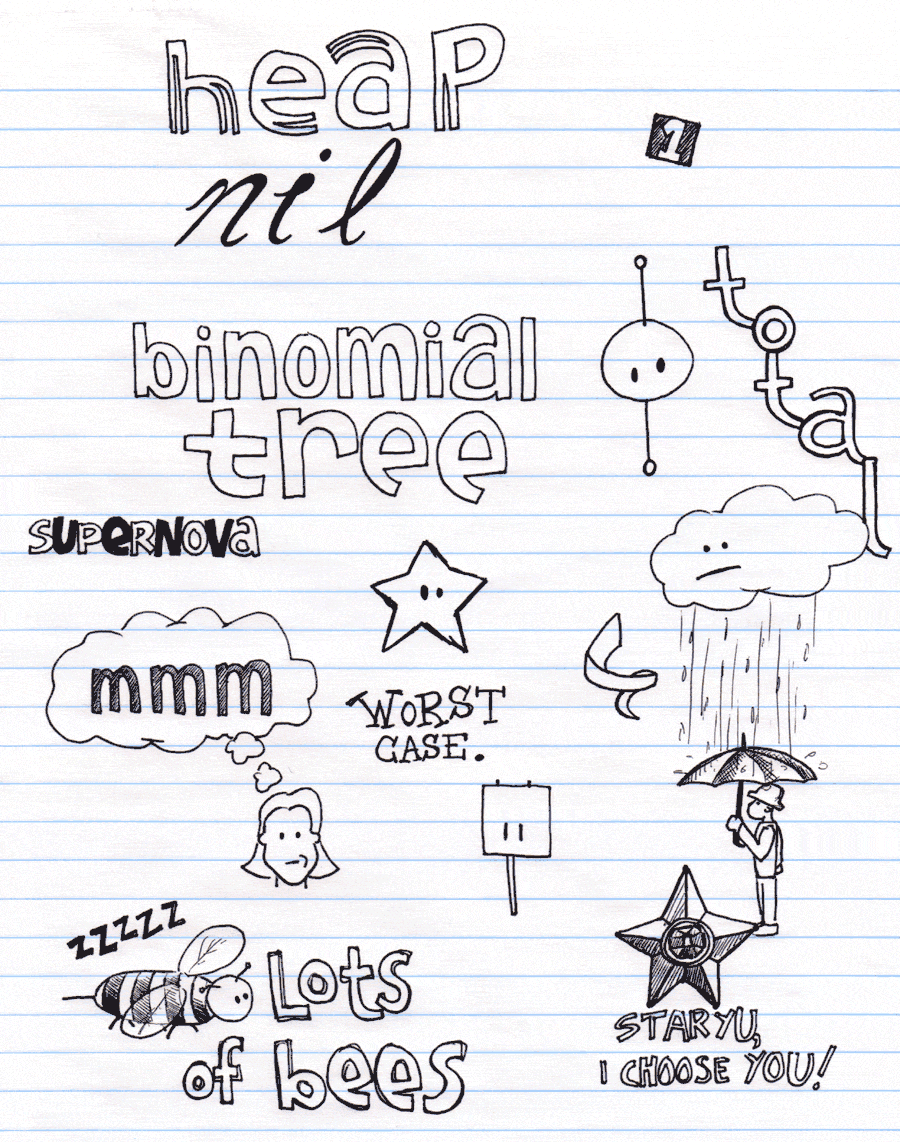 heap
1
nil
total
binomial
tree
SUPERNOVA
mmm
WORST
CASE.
ZZZZZ
Lots
of bees
STARYU,
I CHOOSE YOU!